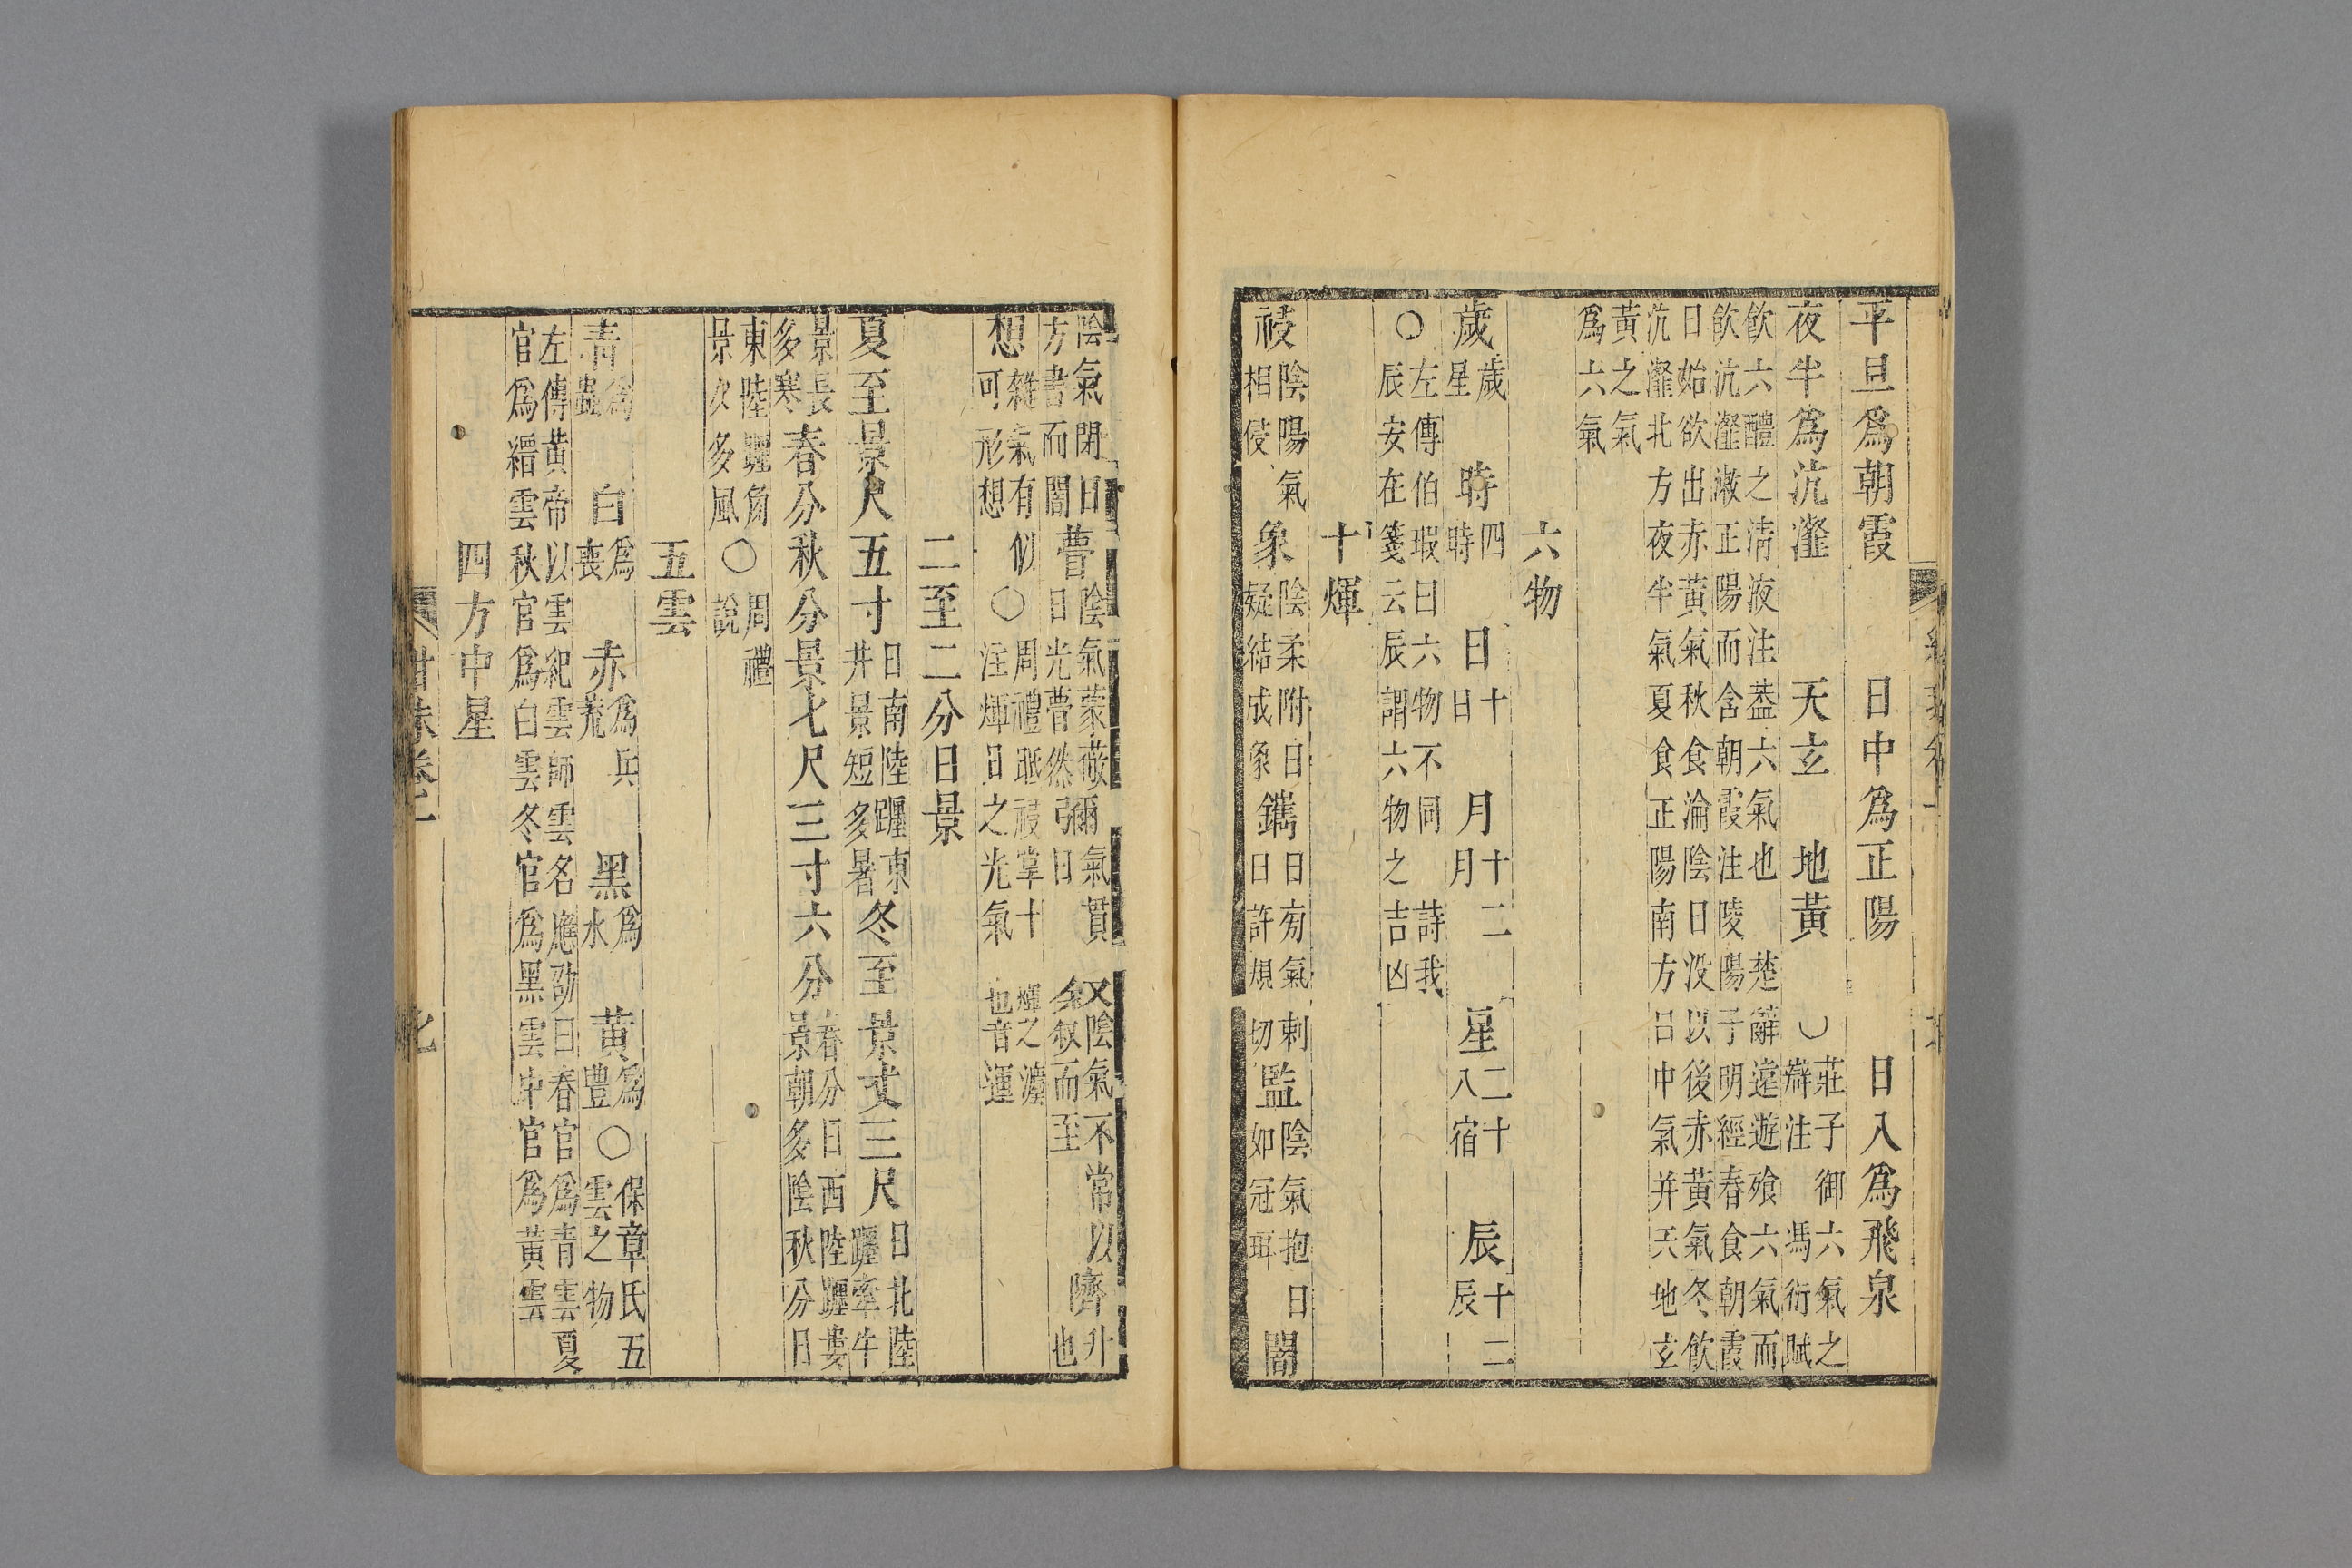 平旦爲朝霞 日中爲正陽 日入爲飛泉
夜半爲沆瀣 天玄 地黃 ○ 莊子御六氣之
辯注 馮衍賦
飲六醴之淸液注蓋六氣也 楚辭遠遊飱六氣而
飲沆瀣漱正陽而含朝霞注陵陽子明經春食朝霞
日始欲出赤黃氣秋食淪陰日没以後赤黃氣冬飲
沆瀣北方夜半氣夏食正陽南方日中氣并天地玄
黃之氣
爲六氣
六物
歲 歲星 時 四時 日 十日 月 十二月 星 二十八宿 辰 十二辰
○ 左傳伯瑕曰六物不同 詩我
辰安在箋云辰謂六物之吉凶
十煇
祲 陰陽氣相侵 象 陰柔附日疑結成象 鐫 日旁氣刺日許規切 監 陰氣抱日如冠珥 闇
陰氣閉日
方晝而闇 瞢 陰氣蒙蔽日光瞢然 彌 氣貫日 叙 陰氣不常以叙而至 隮 升也
想 雜氣有似可形想 ○ 周禮眡祲掌十煇之灋
注煇日之光氣也音運
二至二分日景
夏至景尺五寸 日南陸躔東井景短多暑 冬至景丈三尺 日北陸躔牽牛
景長多寒 春分秋分景七尺三寸六分 春分日西陸躔婁景朝多陰秋分日
東陸躔角景夕多風 ○ 周禮說
五雲
靑 爲蟲 白 爲喪 赤 爲兵荒 黑 爲水 黃 爲豐 ○ 保章氏五雲之物
左傳黃帝以雲紀雲師雲名應劭曰春官爲靑雲夏
官爲縉雲秋官爲白雲冬官爲黑雲中官爲黃雲
四方中星